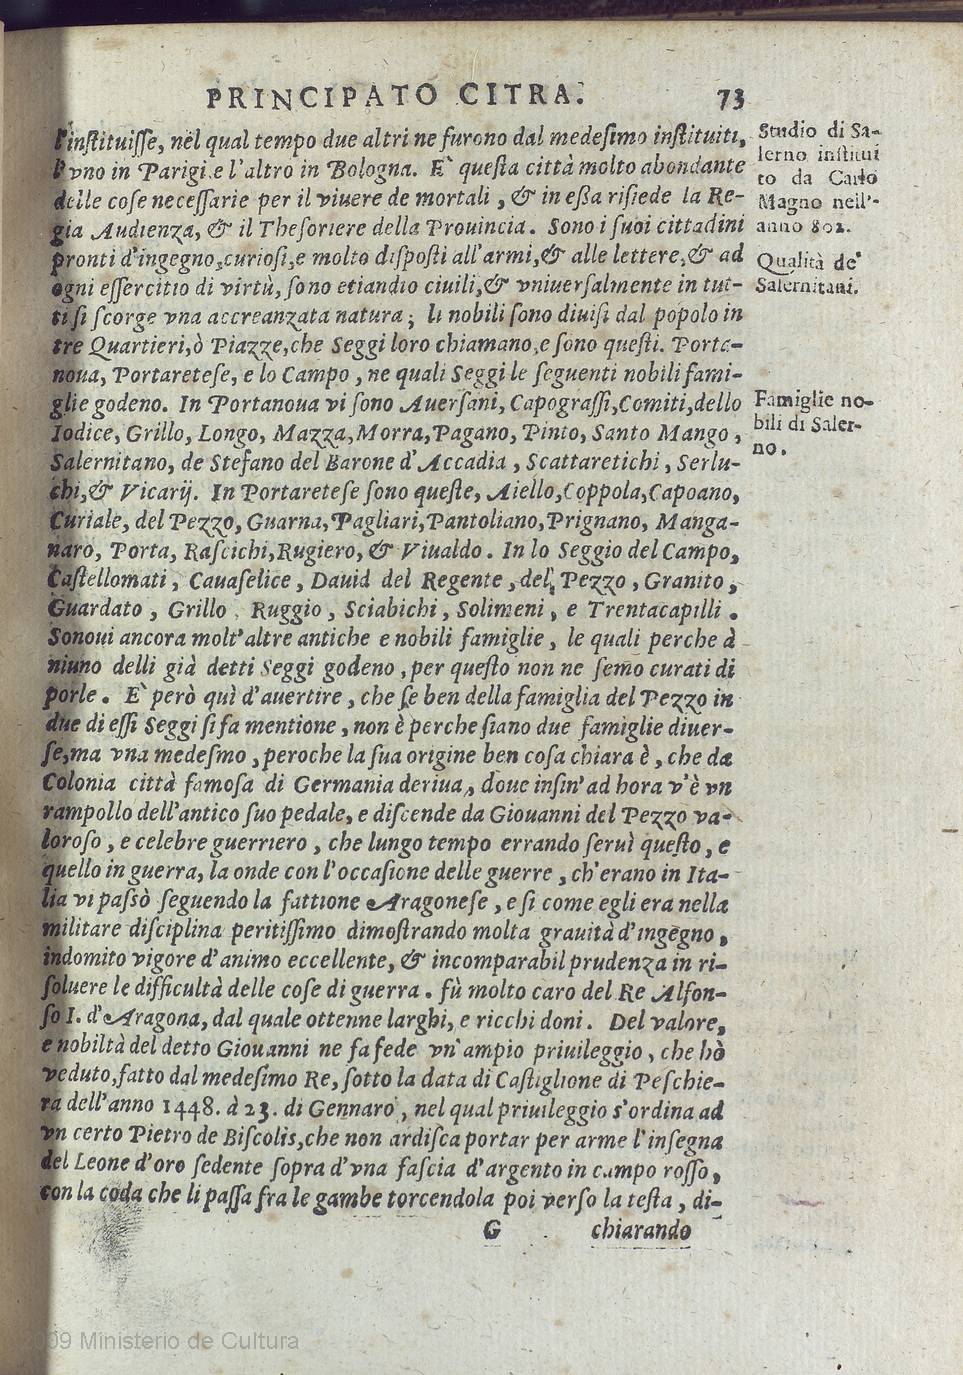 PRINCIPATO CITRA. 73
l'inſtituiſſe, nel qual tempo due altri ne furono dal medeſimo inſtituiti,
l'vno in Parigi, e l'altro in Bologna. E` queſta città molto abondante
delle coſe neceſſarie per il viuere de mortali, & in eßa riſiede la Re-
gia Audienza, & il Theſoriere della Prouincia. Sono i ſuoi cittadini
pronti d'ingegno, curioſi, e molto diſpoſti all'armi, & alle lettere, & ad
ogni eſſercitio di virtù, ſono etiandio ciuili, & vniuerſalmente in tut-
ti ſi ſcorge vna accreanzata natura; li nobili ſono diuiſi dal popolo in
tre Quartieri, ò Piazze, che Seggi loro chiamano, e ſono queſti. Porta-
noua, Portareteſe, e lo Campo, ne quali Seggi le ſeguenti nobili fami-
glie godeno. In Portanoua vi ſono Auerſani, Capograſſi, Comiti, dello
Iodice, Grillo, Longo, Mazza, Morra, Pagano, Pinto, Santo Mango,
Salernitano, de Stefano del Barone d'Accadia, Scattaretichi, Serlu-
chi, & Vicarij. In Portareteſe ſono queſte, Aiello, Coppola, Capoano,
Curiale, del Pezzo, Guarna, Pagliari, Pantoliano, Prignano, Manga-
naro, Porta, Raſcichi, Rugiero, & Viualdo. In lo Seggio del Campo,
Caſtellomati, Cauaſelice, Dauid del Regente, del Pezzo, Granito,
Guardato, Grillo Ruggio, Sciabichi, Solimeni, e Trentacapilli.
Sonoui ancora molt'altre antiche e nobili famiglie, le quali perche à
niuno delli già detti Seggi godeno, per queſto non ne ſemo curati di
porle. E` però quì d'auertire, che ſe ben della famiglia del Pezzo in
due di eſſi Seggi ſi fa mentione, non è perche ſiano due famiglie diuer-
ſe, ma vna medeſmo, peroche la ſua origine ben coſa chiara è, che da
Colonia città famoſa di Germania deriua, doue inſin'ad hora v'è vn
rampollo dell'antico ſuo pedale, e diſcende da Giouanni del Pezzo va-
loroſo, e celebre guerriero, che lungo tempo errando ſeruì queſto, e
quello in guerra, la onde con l'occaſione delle guerre, ch'erano in Ita-
lia vi paſsò ſeguendo la fattione Aragoneſe, e ſi come egli era nella
militare diſciplina peritiſſimo dimoſtrando molta grauità d'ingegno,
indomito vigore d'animo eccellente, & incomparabil prudenza in ri-
ſoluere le difficultà delle coſe di guerra. fù molto caro del Re Alfon-
ſo I. d'Aragona, dal quale ottenne larghi, e ricchi doni. Del valore,
e nobiltà del detto Giouanni ne fa fede vn'ampio priuileggio, che hò
veduto, fatto dal medeſimo Re, ſotto la data di Caſtiglione di Peſchie-
ra dell'anno 1448. à 23. di Gennaro, nel qual priuileggio s'ordina ad
vn certo Pietro de Biſcolis, che non ardiſca portar per arme l'inſegna
del Leone d'oro ſedente ſopra d'vna faſcia d'argento in campo roſſo,
con la coda che li paſſa fra le gambe torcendola poi verſo la teſta, di-
G chiarando
Studio di Sa-
lerno inſtitui
to da Carlo
Magno nell'-
anno 802.
Qualità de'
Salernitani.
Famiglie no-
bili di Saler-
no.
09 Ministerio de Cultura